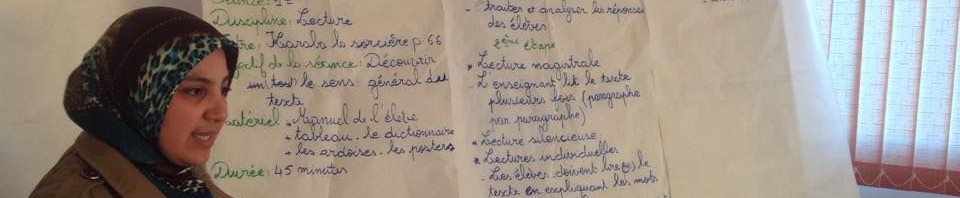 Séance: 1
Discipline: Lecture
Karaba la sorcière p. 66
de la séance: Découvrir
le sens général du
texte
Matériel. Manuel de l'élève
+ tableau. le dictionnaire
+ les ardoises. les posters
Durée: 45 minutes
- traiter et analyser les réponses
des élèves.
2ème étape
* Lecture magistrale
- L'enseignant lit le texte
plusieurs fois (paragraphe
par paragraphe)
* Lecture silencieuse:
* Lectures individuelles
- Les élèves doivent lire le
texte en expliquant les mots